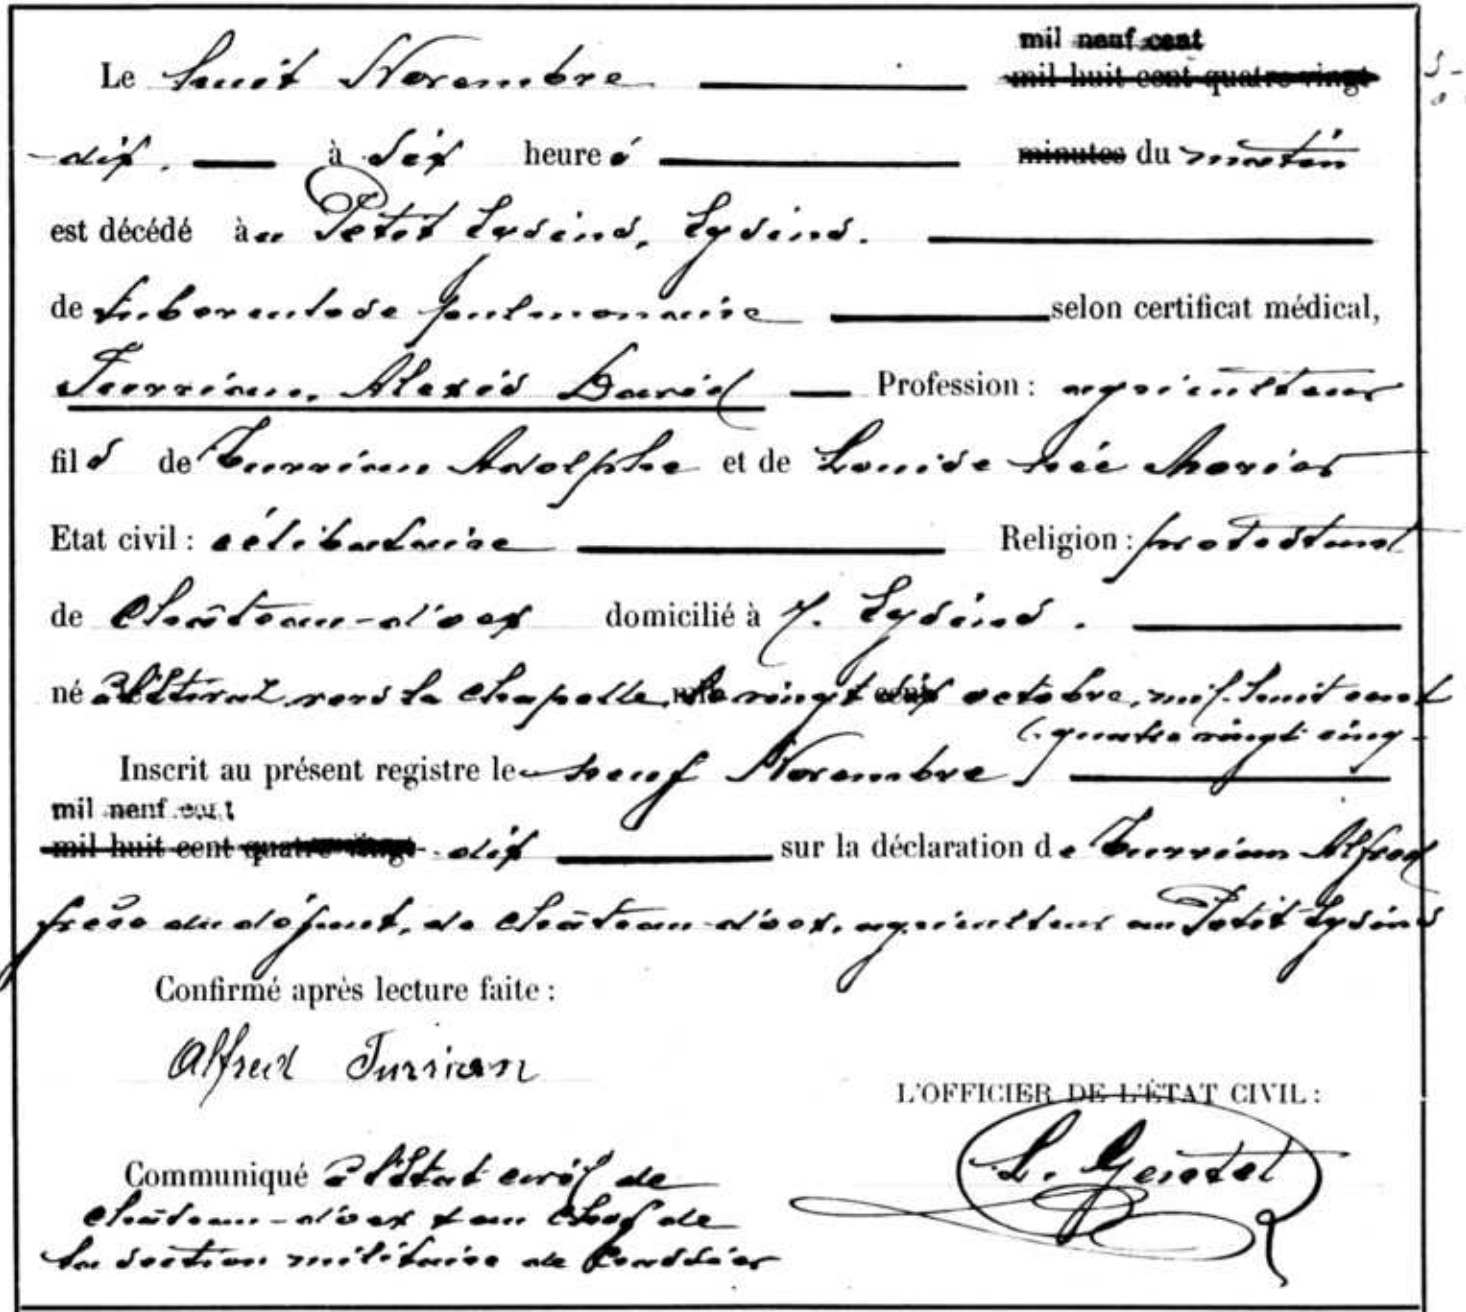 mil neuf cent
Le huit Novembre mil huit cent quatre-vingt
dix. à Six heures minutes du matin
est décédé à au Petit Leysins, Leysins.
de tuberculose pulmonaire selon certificat médical,
Turrian, Alexis David Profession : agriculteur
fils de Turrian Adolphe et de Louise née Morier
Etat civil : célibataire Religion : protestant
de Château-d'oex domicilié à Leysins.
né à l'Etivaz vers la Chapelle, le vingt six octobre, mil huit cent
quatre vingt cinq.
Inscrit au présent registre le neuf Novembre
mil neuf cent
mil huit cent quatre-vingt dix sur la déclaration de Turrian Alfred
frère du défunt, de Château-d'oex, agriculteur au Petit Leysins
Confirmé après lecture faite :
Alfred Turrian
L'OFFICIER DE L'ÉTAT CIVIL :
Communiqué à l'Etat civil de
Château-d'oex & au Chef de
la section militaire de